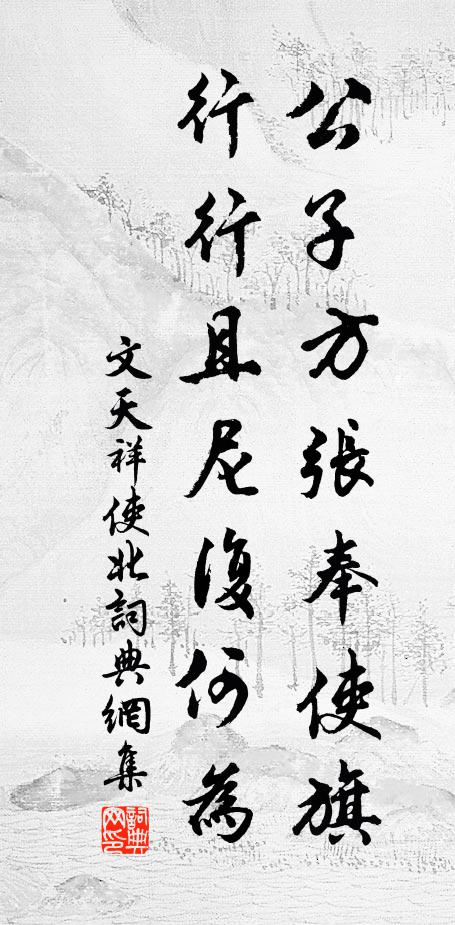 公子方張奉使旗
行行且尼復何為
文天祥使北詞典網集
詞典網印